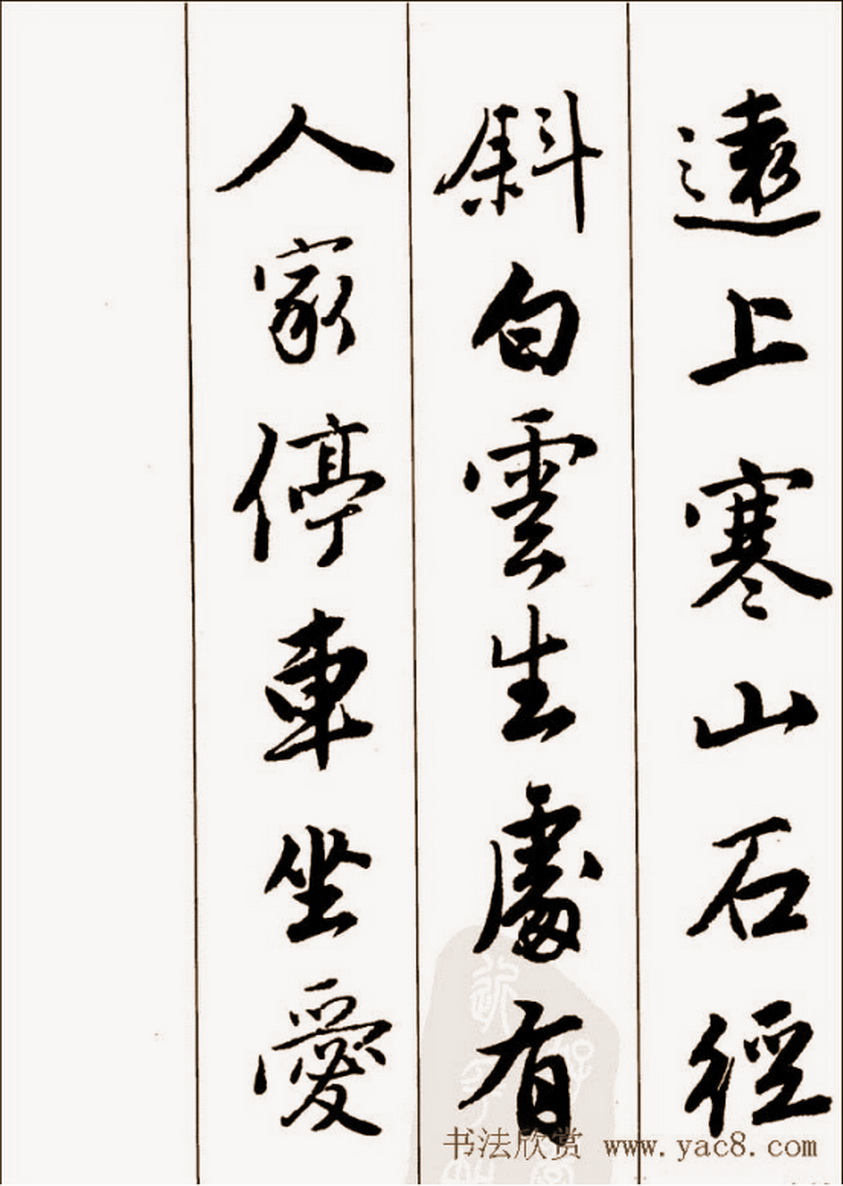 遠上寒山石徑
斜白雲生處有
人家停車坐愛
书法欣赏 www.yac8.com